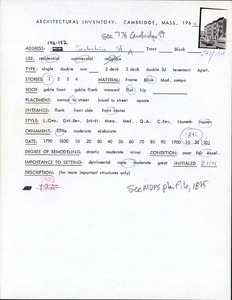 ARCHITECTURAL INVENTORY: CAMBRIDGE, MASS. 196
See 776 Cambridge St
146-152
ADDRESS: Berkshire St A Tract Block
USE: residential commercial
TYPE: single double row 2 deck 3 deck double 3d tenement Apart.
STORIES: 1 2 3 4 MATERIAL: Frame Brick Mod. compo
ROOF: gable front gable flank mansard flat hip
PLACEMENT: narrow to street broad to street square
ENTRANCE: flank front side front center
STYLE: L.Geo. Grk.Rev. Brkt. Mans. Med. Q.A. C.Rev. None
ORNAMENT: little moderate elaborate
1895
DATE: 1790 1820 30 40 50 60 70 80 90 1900 10 20 30
DEGREE OF REMODELING: drastic moderate minor CONDITION: poor fair excel.
IMPORTANCE TO SETTING: detrimental none moderate great INITIALED
DESCRIPTION: (for more important structures only)
See MDPS plan file, 1895